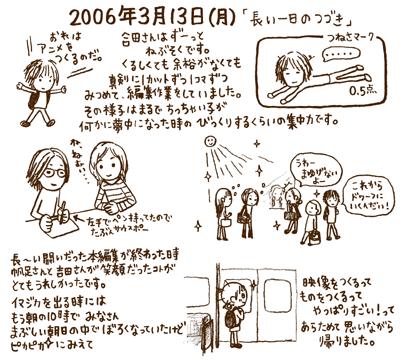 2006年3月13日(月)「長い一日のつづき」
おれは
アニメを
つくるのだ。
合田さんはずーっと
ねぶそくです。
くるしくても余裕がなくても
真剣に1カットずつ1コマずつ
みつめて、編集作業をしていました。
その様子はまるでちっちゃい子が
何かに夢中になった時のびっくりするくらいの集中力です。
つねさマーク
0.5点
ね
ねむい…
左手でペン持ってたので
たぶんサウスポー
うわー
まゆげない
よー
これから
ドワーフに
いくんだい!
長〜い闘いだった本編集が終わった時
帆足さんと吉田さんが笑顔だったコトが
とてもうれしかったです。
イマジカを出る時には
もう朝の10時で みなさん
まぶしい朝日の中でぼろくなっていたけど
ピカピカにみえて
映像をつくるって
ものをつくるって
やっぱりすごい!って
あらためて思いながら
帰りました。